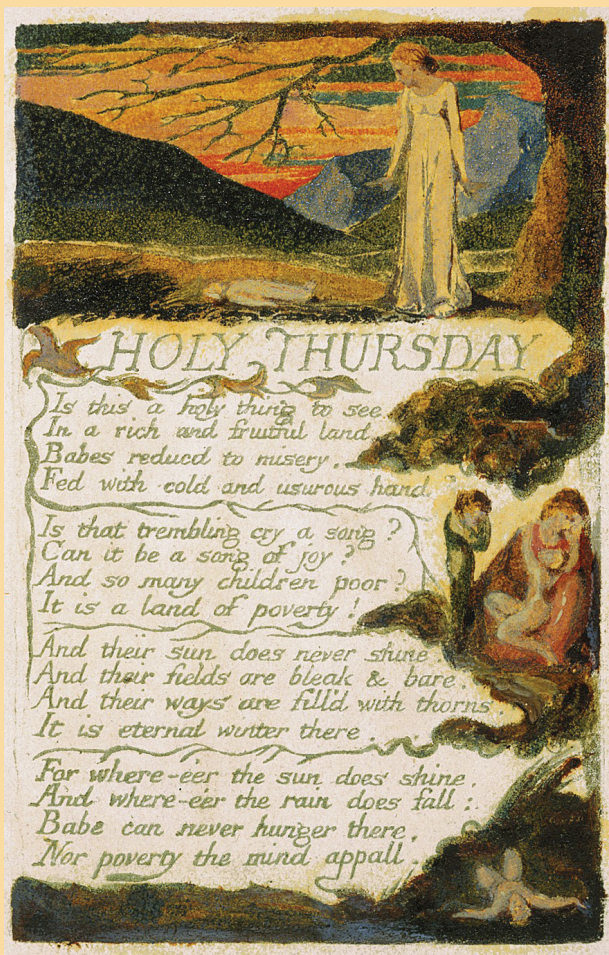 HOLY THURSDAY
Is this a holy thing to see,
In a rich and fruitful land,
Babes reducd to misery,
Fed with cold and usurous hand?
Is that trembling cry a song?
Can it be a song of joy?
And so many children poor?
It is a land of poverty!
And their sun does never shine.
And their fields are bleak & bare.
And their ways are fill'd with thorns
It is eternal winter there.
For where-e'er the sun does shine,
And where-e'er the rain does fall:
Babe can never hunger there,
Nor poverty the mind appall.